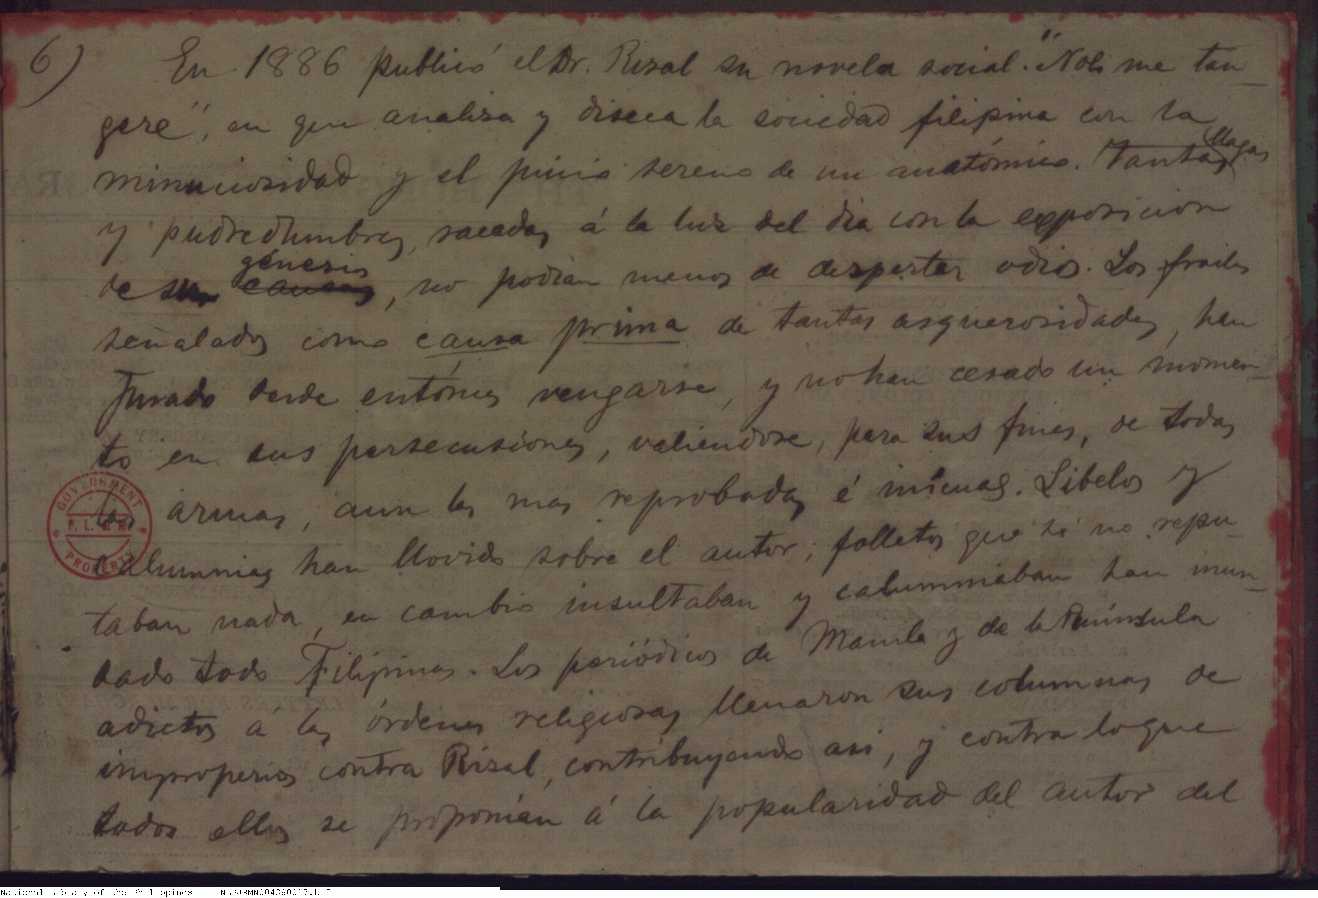 6) En 1886 publicó el Dr. Rizal su novela social "Noli me tan-
gere", en que analiza y diseca la sociedad filipina con la
minuciosidad y el juicio sereno de un anatómico. Tantas llagas
y pudredumbres, sacadas á la luz del dia con la exposicion
de su génesis causas, no podian menos de despertar odios. Los frailes
señalados como causa prima de tantas asquerosidades, han
jurado desde entónces vengarse, y no han cesado un momen-
to en sus persecusiones, valiendose, para sus fines, de todas
las armas, aun las mas reprobadas é inicuas. Libelos y
calumnias han llovido sobre el autor; folletos que si no repu-
taban nada, en cambio insultaban y calumniaban han inun-
dado todo Filipinas. Los periódicos de Manila y de la Península
adictos á las órdenes religiosas llenaron sus columnas de
improperios contra Rizal, contribuyendo asi, y contra lo que
todos ellos se proponian á la popularidad del autor del
GOVERNMENT
PROPERTY
National Library of the Philippines